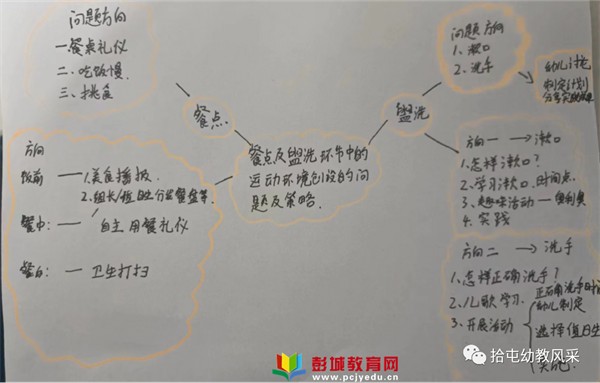 问题方向
一餐桌礼仪
二、吃饭慢.
三、挑食
餐点
方向
饭前 — 1.美食播报.
2.组长/值日生分发餐盘等
餐中: — 自主用餐礼仪
餐后: — 卫生打扫
餐点及盥洗环节中的
运动环境创设的问
题及策略.
盥洗
问题方向
1. 漱口
2. 洗手
幼儿讨论
制定计划
方向一 → 漱口
1.怎样漱口?
2.学习漱口.时间点.
3.趣味活动 —
4.实践
方向二 → 洗手
1.怎样正确洗手?
2.儿歌学习.
3.开展活动
正确洗手
幼儿制定
选择值日生
彭城教育网
www.pcjyedu.cn
拾屯幼教风采